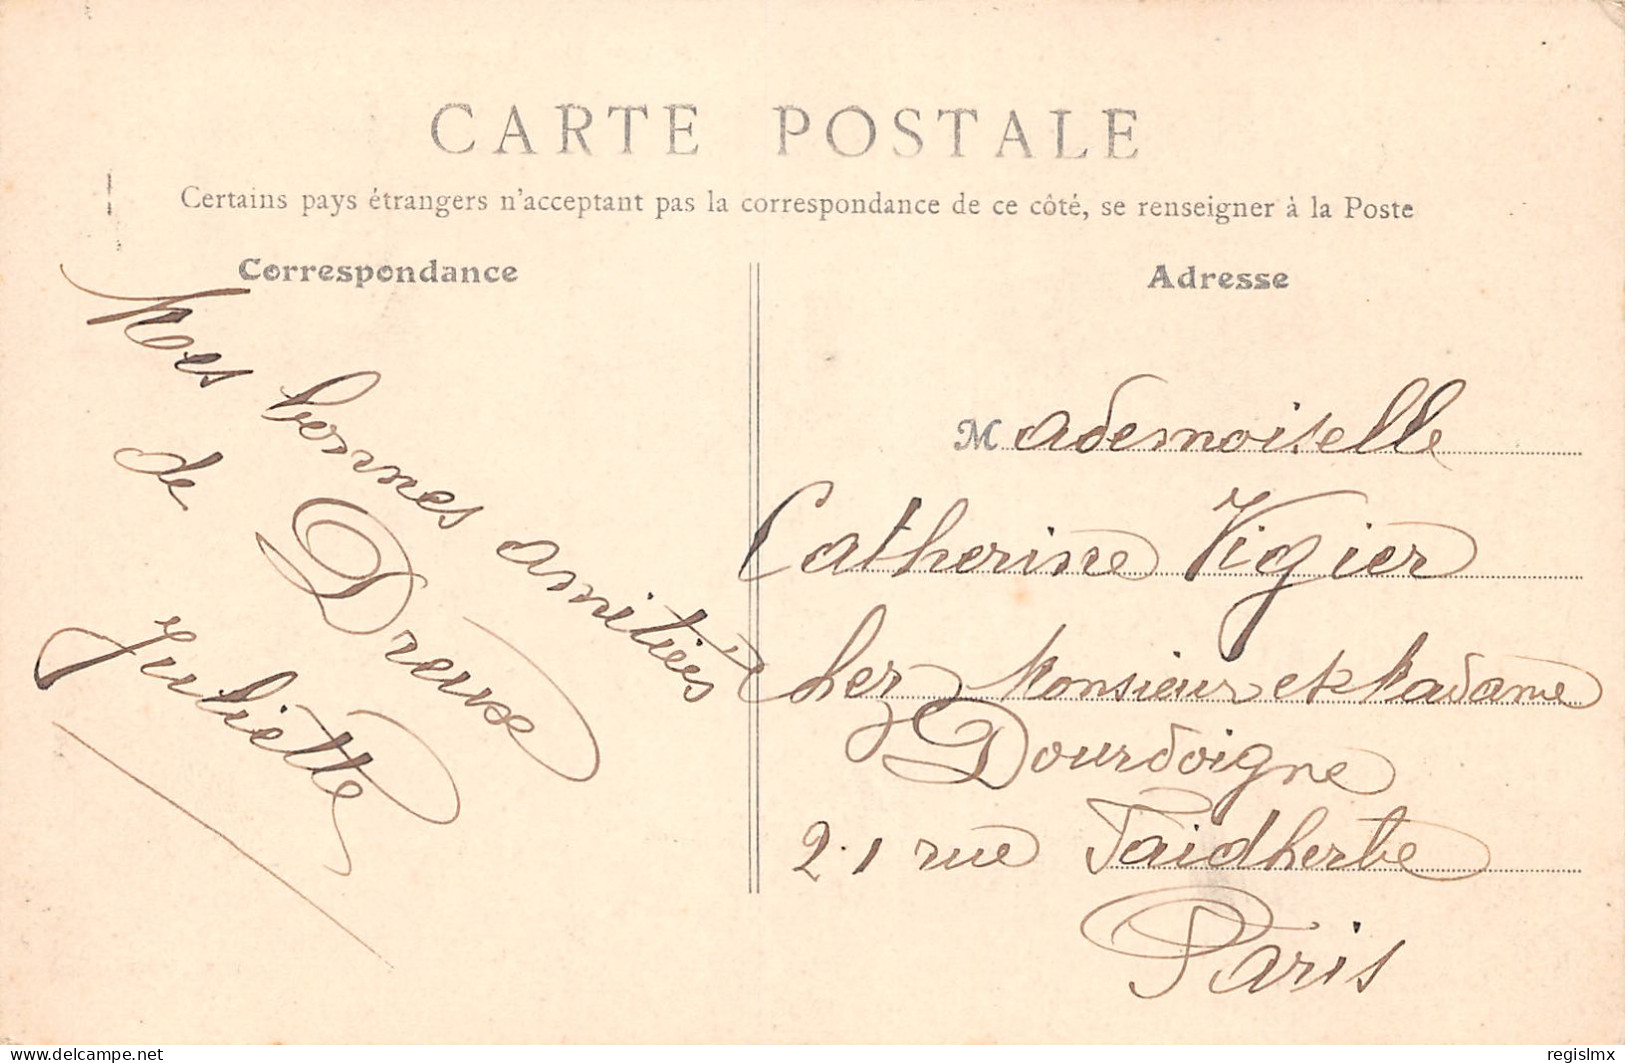 CARTE POSTALE
Certains pays étrangers n'acceptant pas la correspondance de ce côté, se renseigner à la Poste
Correspondance
Mes bonnes amitiés
de Dreux
Juliette
Adresse
Mademoiselle
Catherine Vigier
chez Monsieur et Madame
Dourdoigne
21 rue Faidherbe
Paris
www.delcampe.net
regislmx